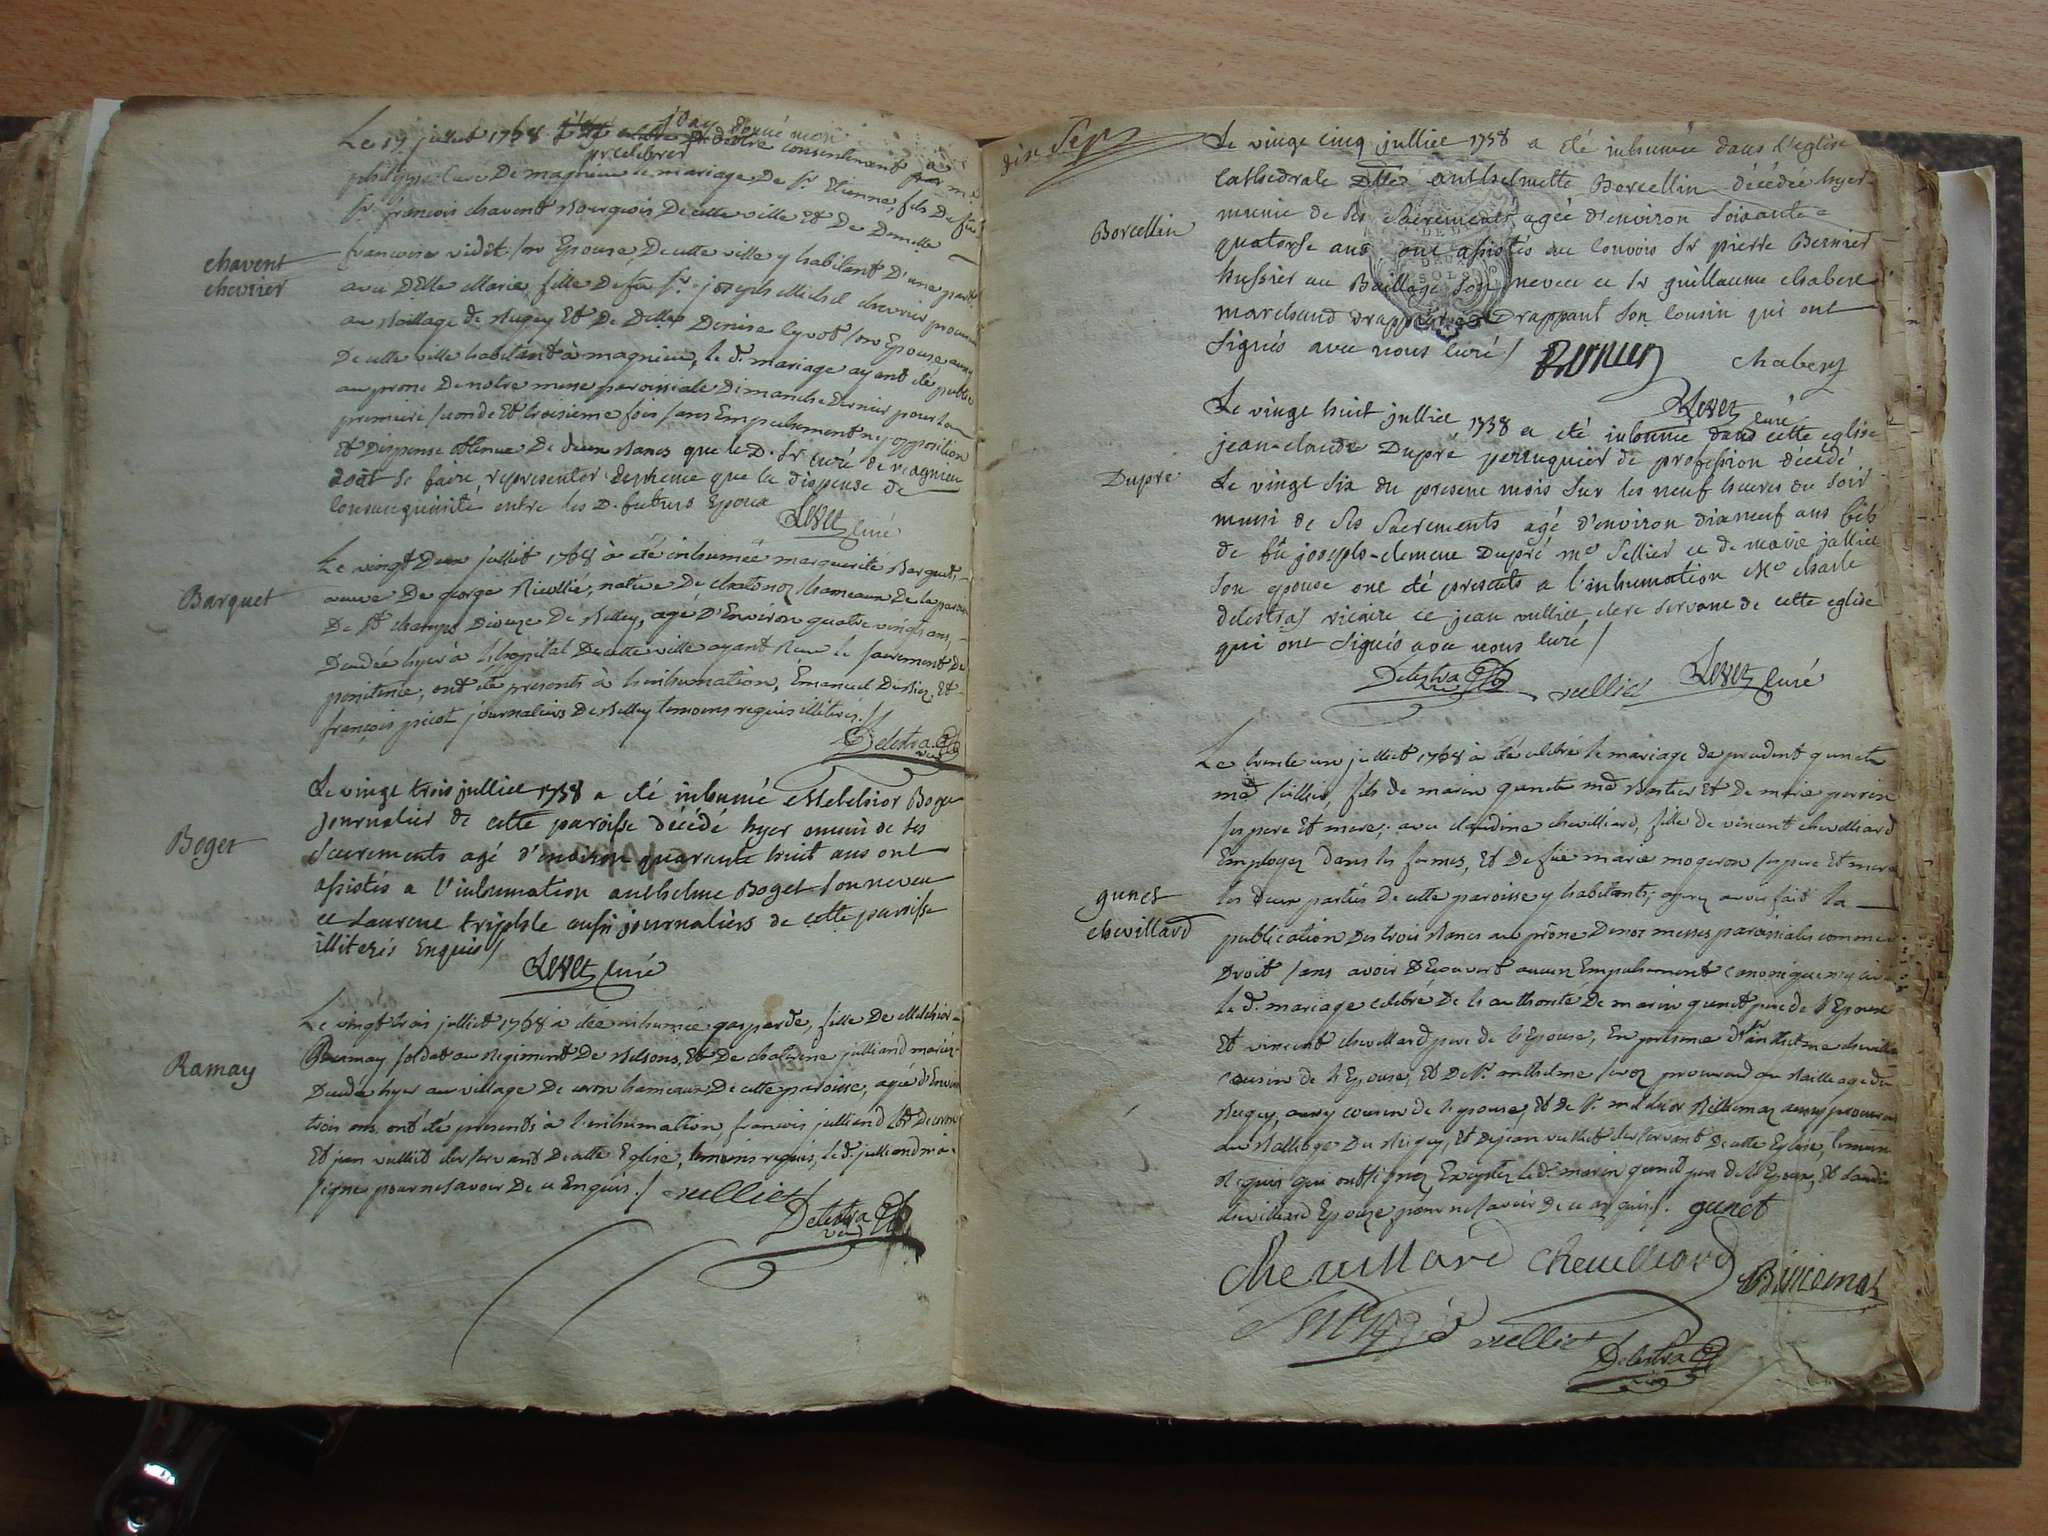 chavent
chevrier
Le 19 juillet 1758 j'ay donné mon
consentement à
pr celebrer
curé De magnieu le mariage De Sr Etienne, fils De feu
Sr françois chavent Bourgeois De cette ville Et De Demelle
françoise vidit son Epouse De cette ville y habitant D'une part
avec Delle Marie fille De feu Sr joseph Michel chevrier procureur
au Baillage de Bugey Et De Delle Denise Cyvot son Epouse aussy
De cette ville habitant à magnieu, le d. mariage ayant été publié
au prone De notre messe paroissiale Dimanche Dernier pour la
premiere seconde Et troisieme fois sans Empechement ny opposition
Et Dispense obtenue De deux Bancs que le D. Sr curé de magnieu
doit se faire representer de meme que la dispense de
consanguinité entre les D. futurs Epoux
Levet curé
Barquet
Le vingt Deux juillet 1758 à été inhumée marguerite Barquet,
veuve De george, native De chatonoz hameaux De la paroisse
De St champs Dioceze De Belley, agé D'Environ quatre vingts ans,
Decedée hyer à l'hopital De cette ville ayant Reçu le sacrement De
penitence, ont été presents à l'inhumation, Emanuel, Et
françois picot journaliers De Belley temoins requis illiterés./
Delestra
vic
Boget
Le vingt trois julliet 1758 a eté inhumé Melchior Boget
journalier de cette paroisse décédé hyer muni de ses
sacrements agé d'environ quarante huit ans ont
assistés a l'inhumation anthelme Boget son neveu
et Laurent aussi journaliers de cette paroisse
illiterés Enquis/
Levet curé
Ramay
Le vingt trois julliet 1758 à étée inhumée gasparde, fille De Melchior
Ramay soldat au Regiment De, Et De julliand mariez
Decedée hyer au village De hameaux De cette paroisse, agée d'Environ
trois ans, ont été presents à l'inhumation françois julliand
Et jean vulliet clerc servant De cette Eglise, temoins requis, le d. julliand n'a
signé pour ne savoir De ce Enquis./ vulliet
Delestra
vic
dix Sept
Borcellin
Le vingt cinq julliet 1758 a eté inhumée dans l'eglise
cathedrale Dlle anthelmette Borcellin décédée hyer
munie de ses sacrements agée d'environ soixante
quatorse ans ont assistés au convois Sr pierre Bernier
hussier au Baillage son neveu et Sr guillaume chabert
marchand Drappant son cousin qui ont
signés avec nous curé/ Bernier chabert
Levet curé
Dupré
Le vingt huit julliet 1758 a eté inhumé dans cette eglise
jean-claude Dupré perruquier de profession décédé
Le vingt six du present mois sur les neuf heures du soir
muni de ses sacrements agé d'environ dixneuf ans fils
de fû joseph-clement Dupré me sellier et de marie julliet
son epouse ont été presents a l'inhumation Me charle
delestraz vicaire et jean vulliet clerc servant de cette eglise
qui ont signés avec nous curé/
Delestra vulliet Levet curé
gunet
chevillard
Le trente un julliet 1758 à été celebré le mariage de prudent gunet
md sellier, fils de marin gunet md Et De marie perrin
ses pere Et mere; avec claudine chevilliard, fille de vincent chevilliard
Employez dans les fermes, Et De füe marie mogeron ses pere Et mere
les deux parties De cette paroisse y habitants; aprez avoir fait La
publication Des trois Bancs au prône De nos messes paroissiales comme de
Droit sans avoir Decouvert aucun Empechement canonique ny civil
le d. mariage celebré De l'authorité De marin gunet pere de l'Epoux
Et vincent chevillard pere de l'epouse, En presence d'Sr anthelme chevillard
cousin de l'Epouse, Et De Sr. anthelme procureur au Bailliage du
Bugey, aussy cousin de l'epouse, Et de Sr. melchior Billiemaz aussy procureur
au Balliage Du Bugey, Et De jean vulliet clerc servant De cette Eglise, temoins
requis qui ont signez, Exceptez le d. marin gunet pere de l'Epoux, Et claudine
chevilliard Epouze pour ne savoir De ce enquis/. gunet
Chevillard chevilliard Billiemaz
vulliet Delestra
vic
DEUX
SOLS